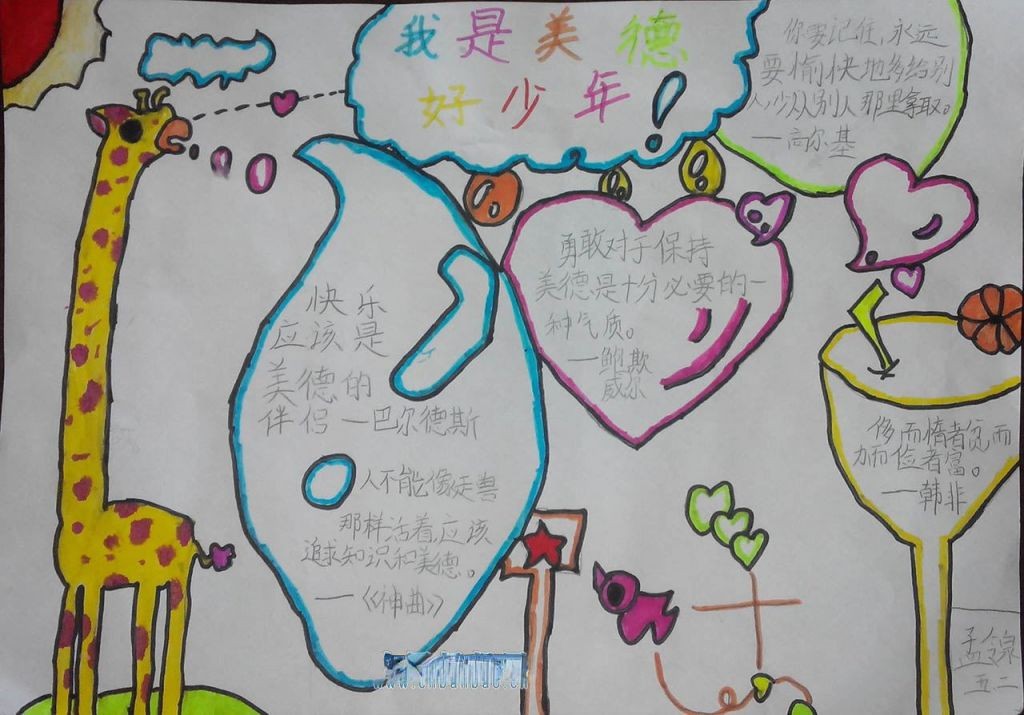 我是美德
好少年!
你要记住,永远
要愉快地多给别
人,少从别人那里拿取。
—高尔基
勇敢对于保持
美德是十分必要的一
种气质。
—鲍欺
威尔
快乐
应该是
美德的
伴侣—巴尔德斯
人不能像走兽
那样活着,应该
追求知识和美德。
—《神曲》
侈而惰者贫而
力而俭者富。
—韩非
孟
五二